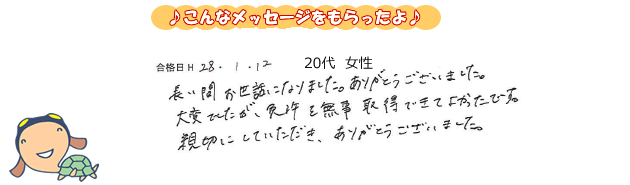 ♪こんなメッセージをもらったよ♪
合格日 H 28. 1. 12 20代 女性
長い間お世話になりました。ありがとうございました。
大変でしたが、免許を無事取得できてよかったです。
親切にしていただき、ありがとうございました。